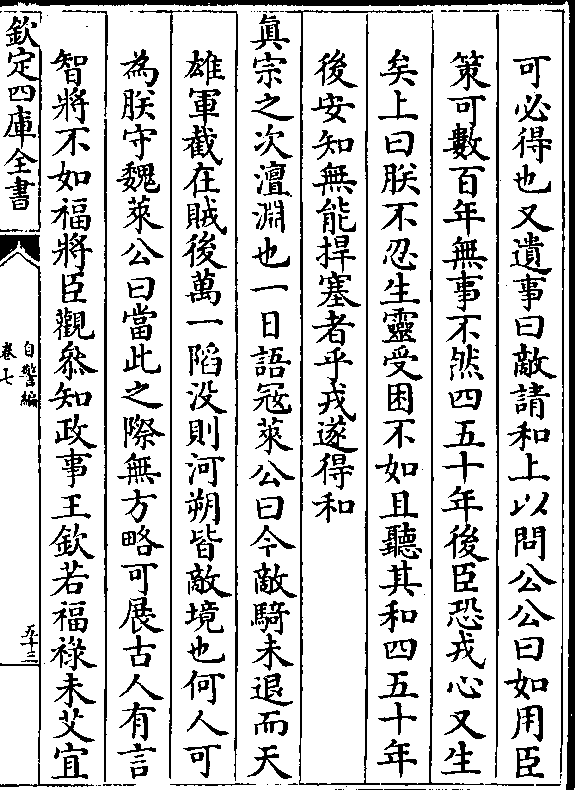 可必得也又遺事曰敵請和上以問公公曰如用臣
策可數百年無事不然四五十年後臣恐戎心又生
矣上曰朕不忍生靈受困不如且聽其和四五十年
後安知無能捍塞者乎戎遂得和
真宗之次澶淵也一日語冦萊公曰今敵騎未退而天
雄軍截在賊後萬一陷没則河朔皆敵境也何人可
為朕守魏萊公曰當此之際無方略可展古人有言
智將不如福將臣觀叅知政事王欽若福祿未艾宜
欽定四庫全書
自警編
卷七
五十三